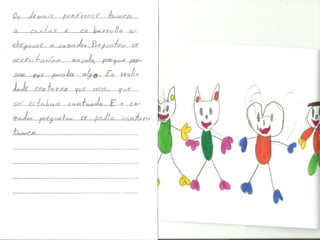 Os demais puxéronse tamén
a cantar e ca barullo a-
chegouse o cazador. Preguntou se
necesitarían axuda porque pen-
sou que pasaba algo. En reali-
dade contaron que non, que
só estaban cantando. E o ca-
zador preguntou se podía cantar
tamén